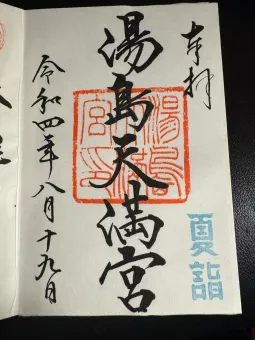 奉拝
夏詣
湯島天満宮
令和四年八月十九日